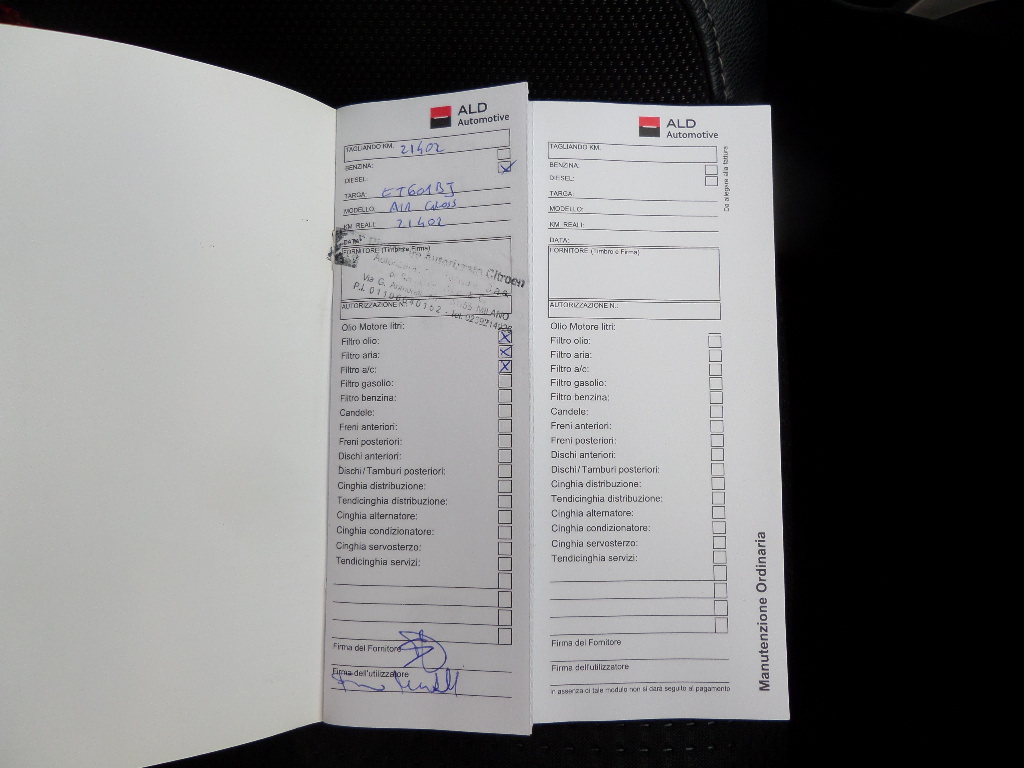 ALD
Automotive
TAGLIANDO KM. 21402
BENZINA:
DIESEL:
TARGA:
MODELLO: AIR CROSS
KM REALI: 21402
DATA:
FORNITORE (Timbro e Firma)
Autorizzato Citroen
Via G.
MILANO
AUTORIZZAZIONE N.:
Olio Motore litri:
Filtro olio: X
Filtro aria: X
Filtro a/c: X
Filtro gasolio:
Filtro benzina:
Candele:
Freni anteriori:
Freni posteriori:
Dischi anteriori:
Dischi/Tamburi posteriori:
Cinghia distribuzione:
Tendicinghia distribuzione:
Cinghia alternatore:
Cinghia condizionatore:
Cinghia servosterzo:
Tendicinghia servizi:
Firma del Fornitore
Firma dell'utilizzatore
ALD
Automotive
TAGLIANDO KM.
BENZINA:
DIESEL:
TARGA:
MODELLO:
KM REALI:
DATA:
FORNITORE (Timbro e Firma)
AUTORIZZAZIONE N.:
Olio Motore litri:
Filtro olio:
Filtro aria:
Filtro a/c:
Filtro gasolio:
Filtro benzina:
Candele:
Freni anteriori:
Freni posteriori:
Dischi anteriori:
Dischi/Tamburi posteriori:
Cinghia distribuzione:
Tendicinghia distribuzione:
Cinghia alternatore:
Cinghia condizionatore:
Cinghia servosterzo:
Tendicinghia servizi:
Firma del Fornitore
Firma dell'utilizzatore
in assenza di tale modulo non si darà seguito al pagamento
Da allegare alla fattura
Manutenzione Ordinaria